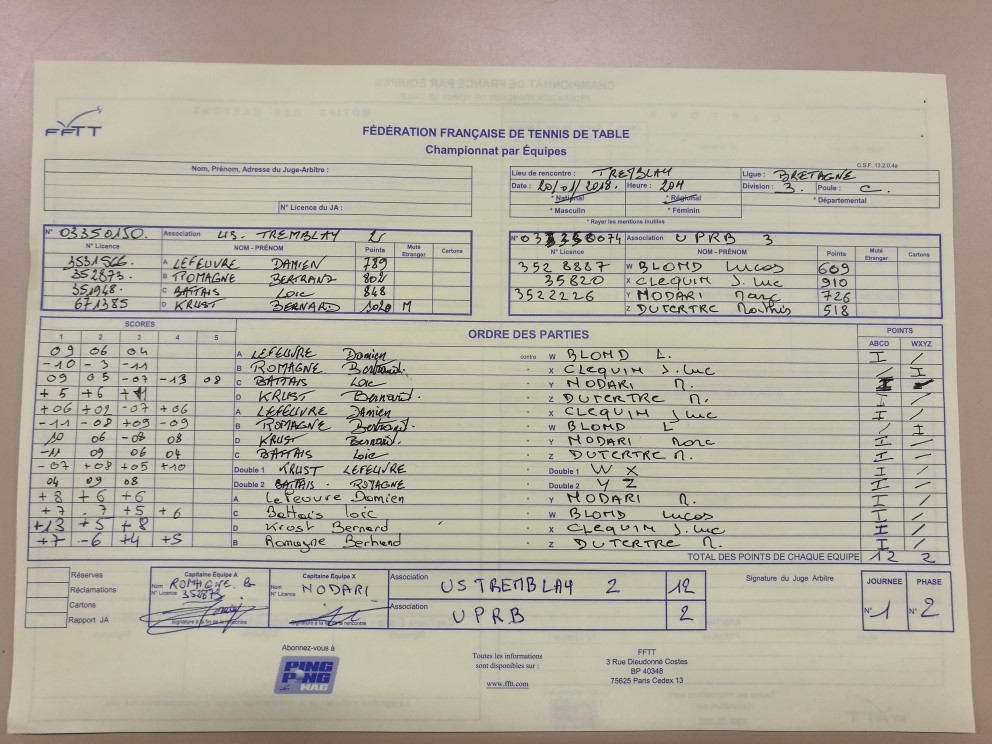 FFTT
FÉDÉRATION FRANÇAISE DE TENNIS DE TABLE
Championnat par Équipes
C.S.F. 13.2.0.4a
Nom, Prénom, Adresse du Juge-Arbitre :
N° Licence du JA :
Lieu de rencontre : TREMBLAY Ligue : BRETAGNE
Date : 20/01/2018. Heure : 20H Division : 3. Poule : C.
* National * Régional * Départemental
* Masculin * Féminin
* Rayer les mentions inutiles
N° 03350150. Association US. TREMBLAY 2
N° Licence NOM - PRÉNOM Points Muté Etranger Cartons
3531566. A LEFEUVRE DAMIEN 789
352873. B ROMAGNE BERTRAND 802
351948. C BATTAIS Loïc 848
671385 D KRUST BERNARD 1020 M
Association UPRB 3
N° Licence NOM - PRÉNOM Points Muté Etranger Cartons
352 8887 W BLOND Lucas 609
35820 X CLEQUIN J. Luc 910
3522226 Y MODARI Marc 726
Z DUTERTRE Mathis 518
SCORES ORDRE DES PARTIES POINTS
1 2 3 4 5 ABCD WXYZ
09 06 04 A LEFEUVRE Damien contre W BLOND L. I /
-10 -3 -11 B ROMAGNE Bertrand X CLEQUIN J. Luc / I
09 05 -07 -13 08 C BATTAIS Loïc Y MODARI M. I
+5 +6 +11 D KRUST Bernard. Z DUTERTRE M.
+06 +02 -07 +06 A LEFEUVRE Damien X CLEQUIN J Luc I /
-11 -08 +09 -09 B ROMAGNE Bertrand. W BLOND L / I
10 06 -08 08 D KRUST Bernard. Y MODARI Marc I /
-11 09 06 04 C BATTAIS Loïc Z DUTERTRE M. I /
-07 +08 +05 +10 Double 1 KRUST LEFEUVRE Double 1 W X I /
04 09 08 Double 2 BATTAIS - ROMAGNE Double 2 Y Z I /
+8 +6 +6 A Lefeuvre Damien Y MODARI M. I /
+7 -7 +5 +6 C Battais loïc W BLOND Lucas I /
+13 +5 +8 D Krust Bernard X CLEQUIN J. Luc I /
+7 -6 +4 +5 B Romagne Bertrand Z DUTERTRE M. I /
TOTAL DES POINTS DE CHAQUE EQUIPE 12 2
Réserves
Réclamations
Cartons
Rapport JA
Capitaine Équipe A
Nom ROMAGNE B
N° Licence 352873
Signature à la fin de la rencontre
Capitaine Équipe X
Nom MODARI
N° Licence
Signature à la fin de la rencontre
Association US TREMBLAY 2 12
Association UPRB 2
Signature du Juge Arbitre
JOURNEE PHASE
N° 1 N° 2
Abonnez-vous à
PING PONG MAG
Toutes les informations
sont disponibles sur :
www.fftt.com
FFTT
3 Rue Dieudonné Costes
BP 40348
75625 Paris Cedex 13